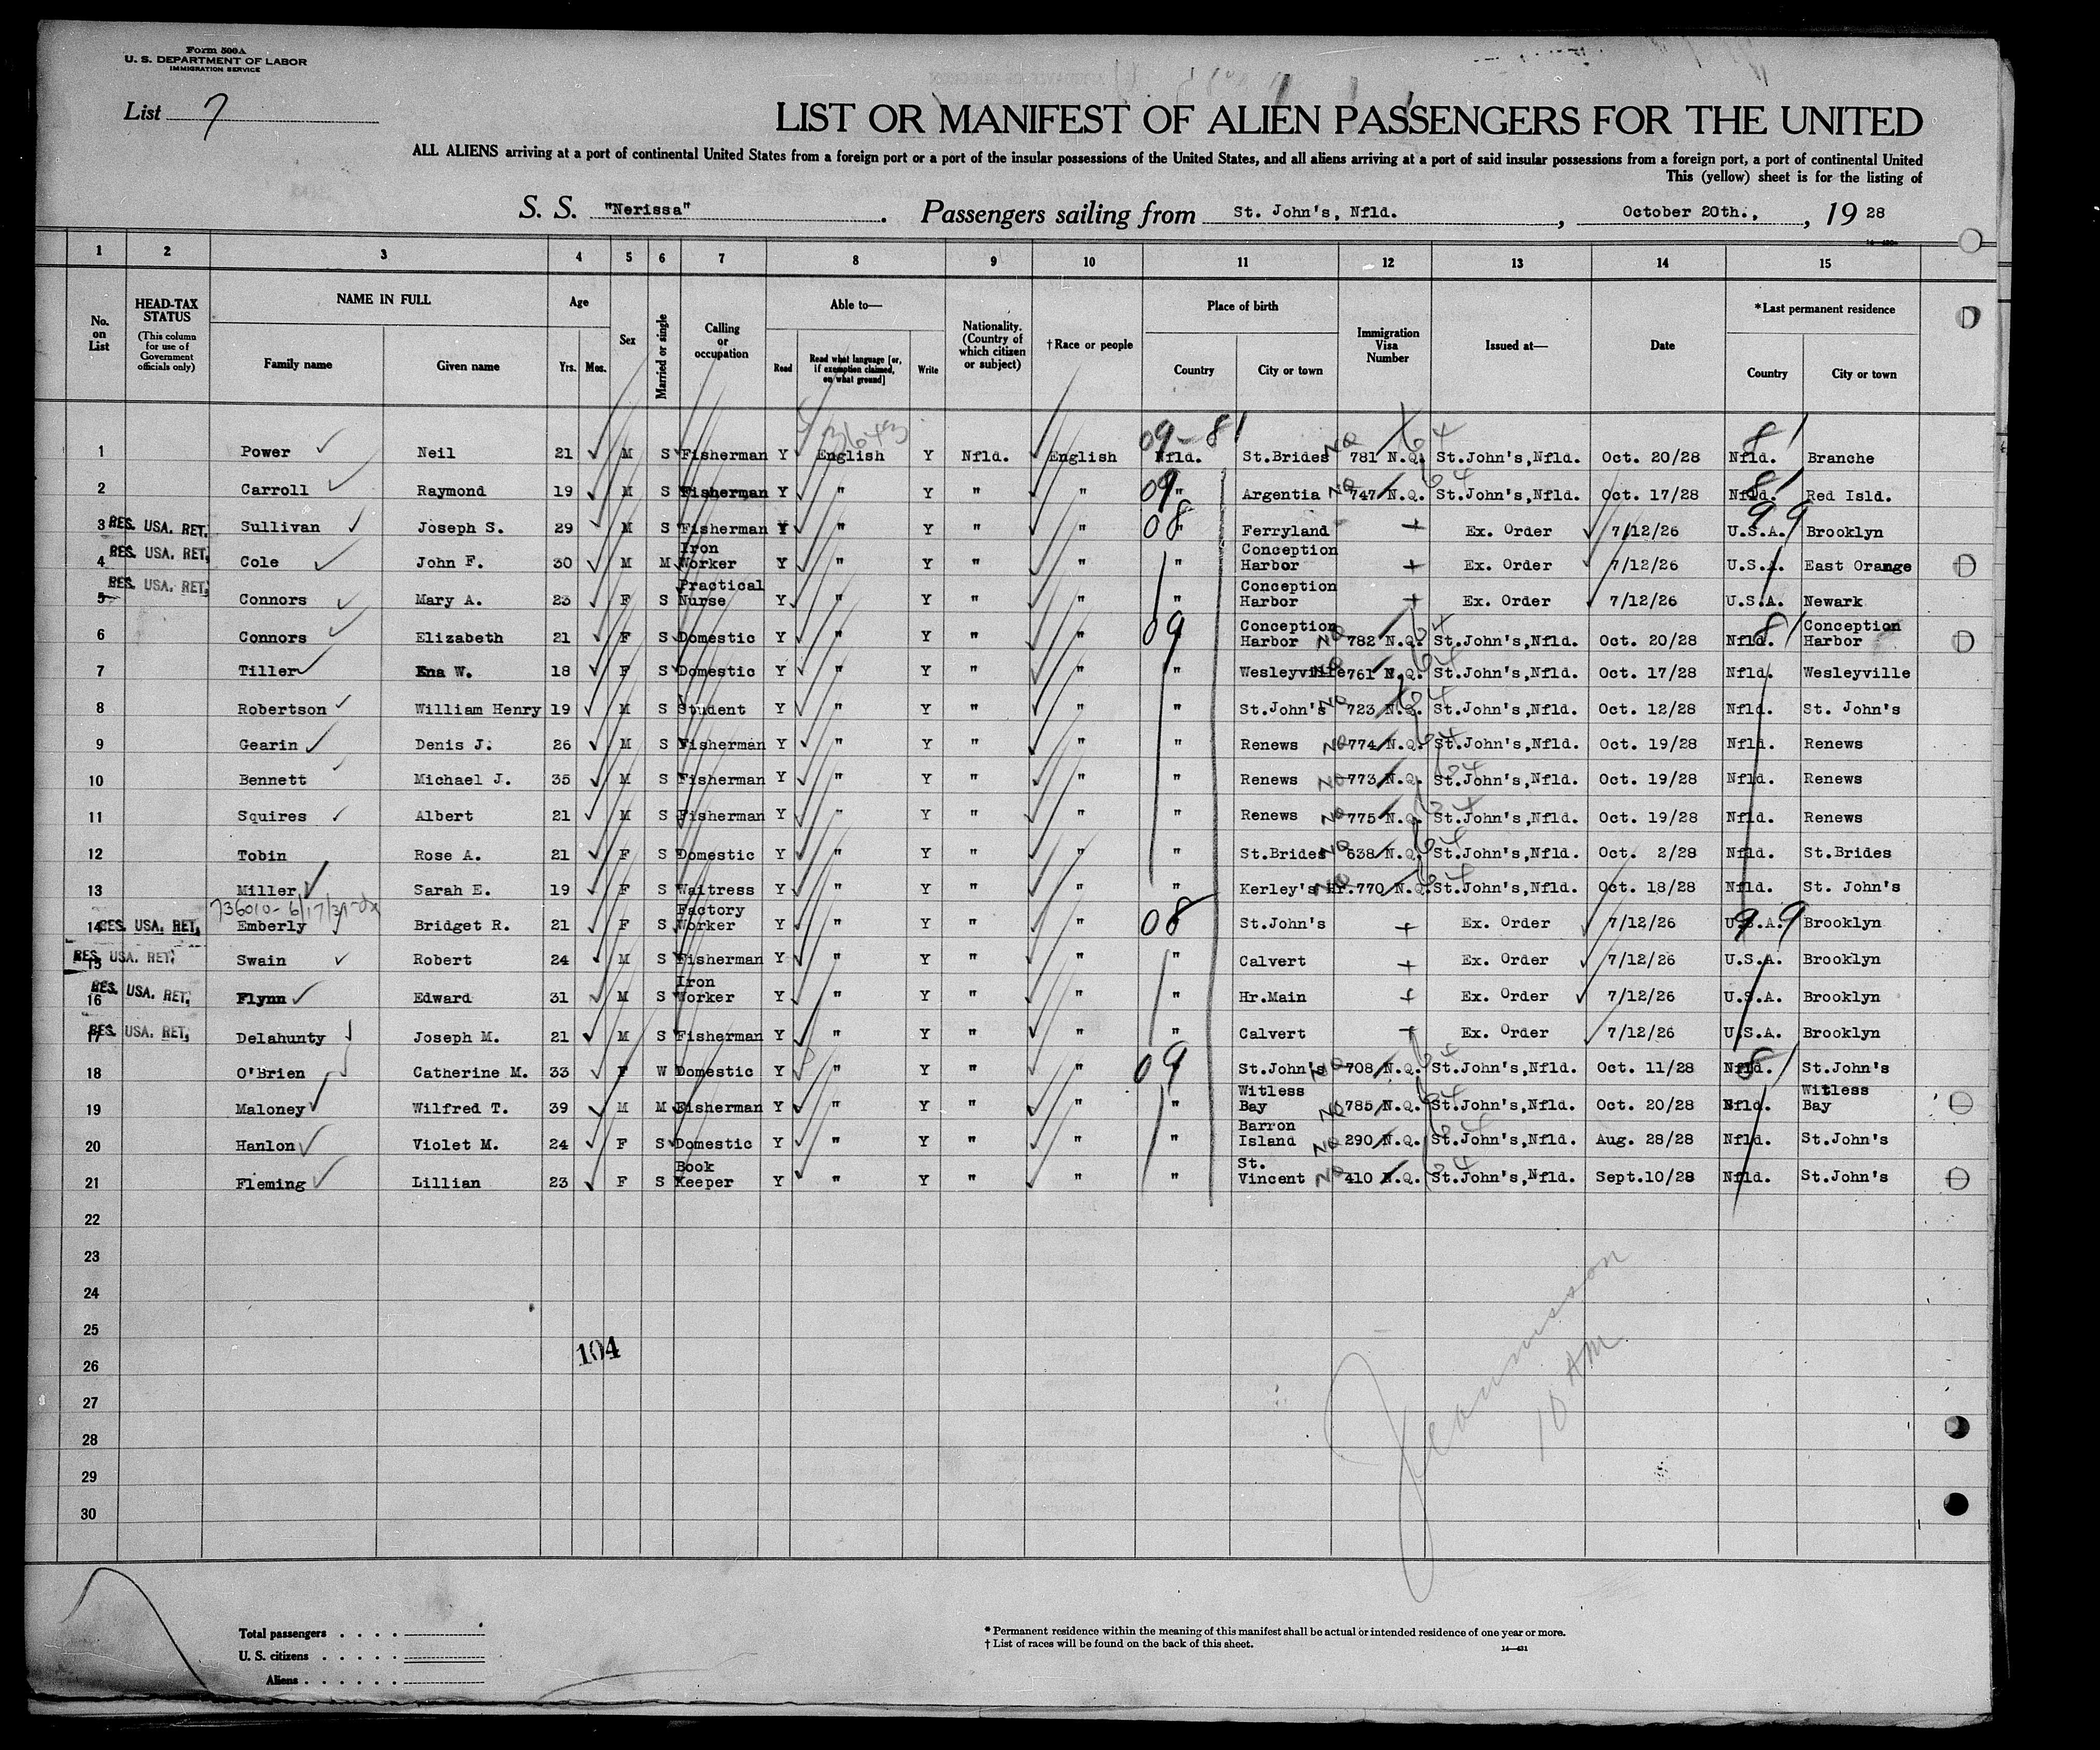 Form 500A
U. S. DEPARTMENT OF LABOR
IMMIGRATION SERVICE
List 7
LIST OR MANIFEST OF ALIEN PASSENGERS FOR THE UNITED
ALL ALIENS arriving at a port of continental United States from a foreign port or a port of the insular possessions of the United States, and all aliens arriving at a port of said insular possessions from a foreign port, a port of continental United
This (yellow) sheet is for the listing of
S. S. "Nerissa". Passengers sailing from St. John's, Nfld., October 20th., , 19 28
1 2 3 4 5 6 7 8 9 10 11 12 13 14 15
No. on List
HEAD-TAX STATUS (This column for use of Government officials only)
NAME IN FULL
Family name Given name
Age Yrs. Mos.
Sex
Married or single
Calling or occupation
Able to—
Read Read what language [or, if exemption claimed, on what ground] Write
Nationality. (Country of which citizen or subject)
†Race or people
Place of birth
Country City or town
Immigration Visa Number
Issued at—
Date
*Last permanent residence
Country City or town
09-81 81
1 Power Neil 21 M S Fisherman Y English Y Nfld. English Nfld. St.Brides NQ 781 N.Q. 64 St.John's,Nfld. Oct. 20/28 Nfld. Branche
2 Carroll Raymond 19 M S Fisherman Y " Y " " 09 " Argentia NQ 747 N.Q. 64 St.John's,Nfld. Oct. 17/28 Nfld. 81 Red Isld.
3 RES. USA. RET. Sullivan Joseph S. 29 M S Fisherman Y " Y " " 08 " Ferryland + Ex. Order 7/12/26 U.S.A. 99 Brooklyn
4 RES. USA. RET. Cole John F. 30 M M Iron Worker Y " Y " " " Conception Harbor + Ex. Order 7/12/26 U.S.A. East Orange
5 RES. USA. RET. Connors Mary A. 23 F S Practical Nurse Y " Y " " " Conception Harbor + Ex. Order 7/12/26 U.S.A. Newark
6 Connors Elizabeth 21 F S Domestic Y " Y " " 09 Conception Harbor NQ 782 N.Q. 64 St.John's,Nfld. Oct. 20/28 Nfld. 81 Conception Harbor
7 Tiller Ena W. 18 F S Domestic Y " Y " " " Wesleyville NQ 761 N.Q. 64 St.John's,Nfld. Oct. 17/28 Nfld. Wesleyville
8 Robertson William Henry 19 M S Student Y " Y " " " St.John's NQ 723 N.Q. 64 St.John's,Nfld. Oct. 12/28 Nfld. St. John's
9 Gearin Denis J. 26 M S Fisherman Y " Y " " " Renews NQ 774 N.Q. 64 St.John's,Nfld. Oct. 19/28 Nfld. Renews
10 Bennett Michael J. 35 M S Fisherman Y " Y " " " Renews NQ 773 N.Q. 64 St.John's,Nfld. Oct. 19/28 Nfld. Renews
11 Squires Albert 21 M S Fisherman Y " Y " " " Renews NQ 775 N.Q. 64 St.John's,Nfld. Oct. 19/28 Nfld. Renews
12 Tobin Rose A. 21 F S Domestic Y " Y " " " St.Brides NQ 638 N.Q. 64 St.John's,Nfld. Oct. 2/28 Nfld. St.Brides
13 Miller Sarah E. 19 F S Waitress Y " Y " " " Kerley's Hr. NQ 770 N.Q. 64 St.John's,Nfld. Oct. 18/28 Nfld. St. John's
14 RES. USA. RET. Emberly Bridget R. 21 F S Factory Worker Y " Y " " 08 St.John's + Ex. Order 7/12/26 U.S.A. 99 Brooklyn
15 RES. USA. RET. Swain Robert 24 M S Fisherman Y " Y " " " Calvert + Ex. Order 7/12/26 U.S.A. Brooklyn
16 RES. USA. RET. Flynn Edward 31 M S Iron Worker Y " Y " " " Hr.Main + Ex. Order 7/12/26 U.S.A. Brooklyn
17 RES. USA. RET. Delahunty Joseph M. 21 M S Fisherman Y " Y " " " Calvert + Ex. Order 7/12/26 U.S.A. Brooklyn
18 O'Brien Catherine M. 33 F W Domestic Y " Y " " 09 St.John's NQ 708 N.Q. 64 St.John's,Nfld. Oct. 11/28 Nfld. 81 St.John's
19 Maloney Wilfred T. 39 M M Fisherman Y " Y " " " Witless Bay NQ 785 N.Q. 64 St.John's,Nfld. Oct. 20/28 Nfld. Witless Bay
20 Hanlon Violet M. 24 F S Domestic Y " Y " " " Barron Island NQ 290 N.Q. 64 St.John's,Nfld. Aug. 28/28 Nfld. St.John's
21 Fleming Lillian 23 F S Book Keeper Y " Y " " " St. Vincent NQ 410 N.Q. 64 St.John's,Nfld. Sept.10/28 Nfld. St.John's
22
23
24
25
104
26
27
28
29
30
10 AM
Total passengers
U. S. citizens
Aliens
* Permanent residence within the meaning of this manifest shall be actual or intended residence of one year or more.
† List of races will be found on the back of this sheet.
14—431